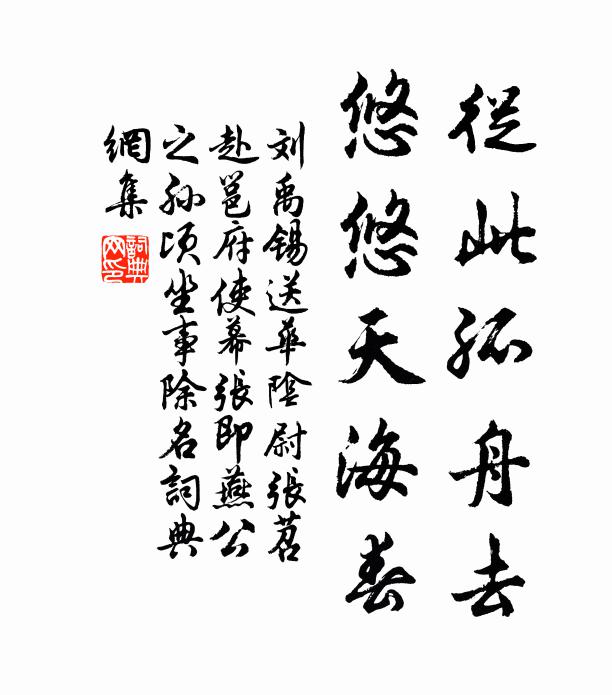 從此孤舟去
悠悠天海春
刘禹锡送華陰尉張苕
赴邕府使幕張即燕公
之孙顷坐事除名詞典
網集
詞典網印